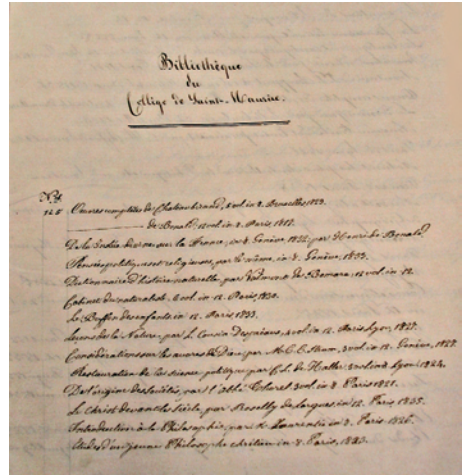 Bibliothèque
du
Collège de Saint-Maurice.
Nos
Oeuvres complètes de Chateaubriand, vol. in 8. Bruxelles 1828.
de Bonald, 12 vol. in 8. Paris, 1817.
De la France, in 8. Genève, par Henri de Bonald
Pensées politiques et religieuses, par le même, in 8. Genève, 1833.
Dictionnaire d'histoire naturelle, par Valmont de Bomare, 12 vol. in 12.
Cabinet du naturaliste, vol. in 12. Paris 1830.
Le Buffon des enfants in 12. Paris 1833.
Leçons de la Nature, par L. Cousin Despréaux, 4 vol. in 12. Paris Lyon, 1827.
Considérations sur les oeuvres de Dieu, par M. C. C. Sturm, 3 vol. in 12. Genève,
Restauration de la science politique par C. L. de Haller, in 8. Lyon, 1824.
De l'origine des Sociétés, par l'abbé 3 vol. in 8. Paris 1821.
Le Christ devant le siècle, par Roselly de Lorgues in 12. Paris 1835.
Introduction à la Philosophie, par de Laurentie in 8. Paris, 1826.
Etudes d'un jeune Philosophe chrétien in 8. Paris, 1823.